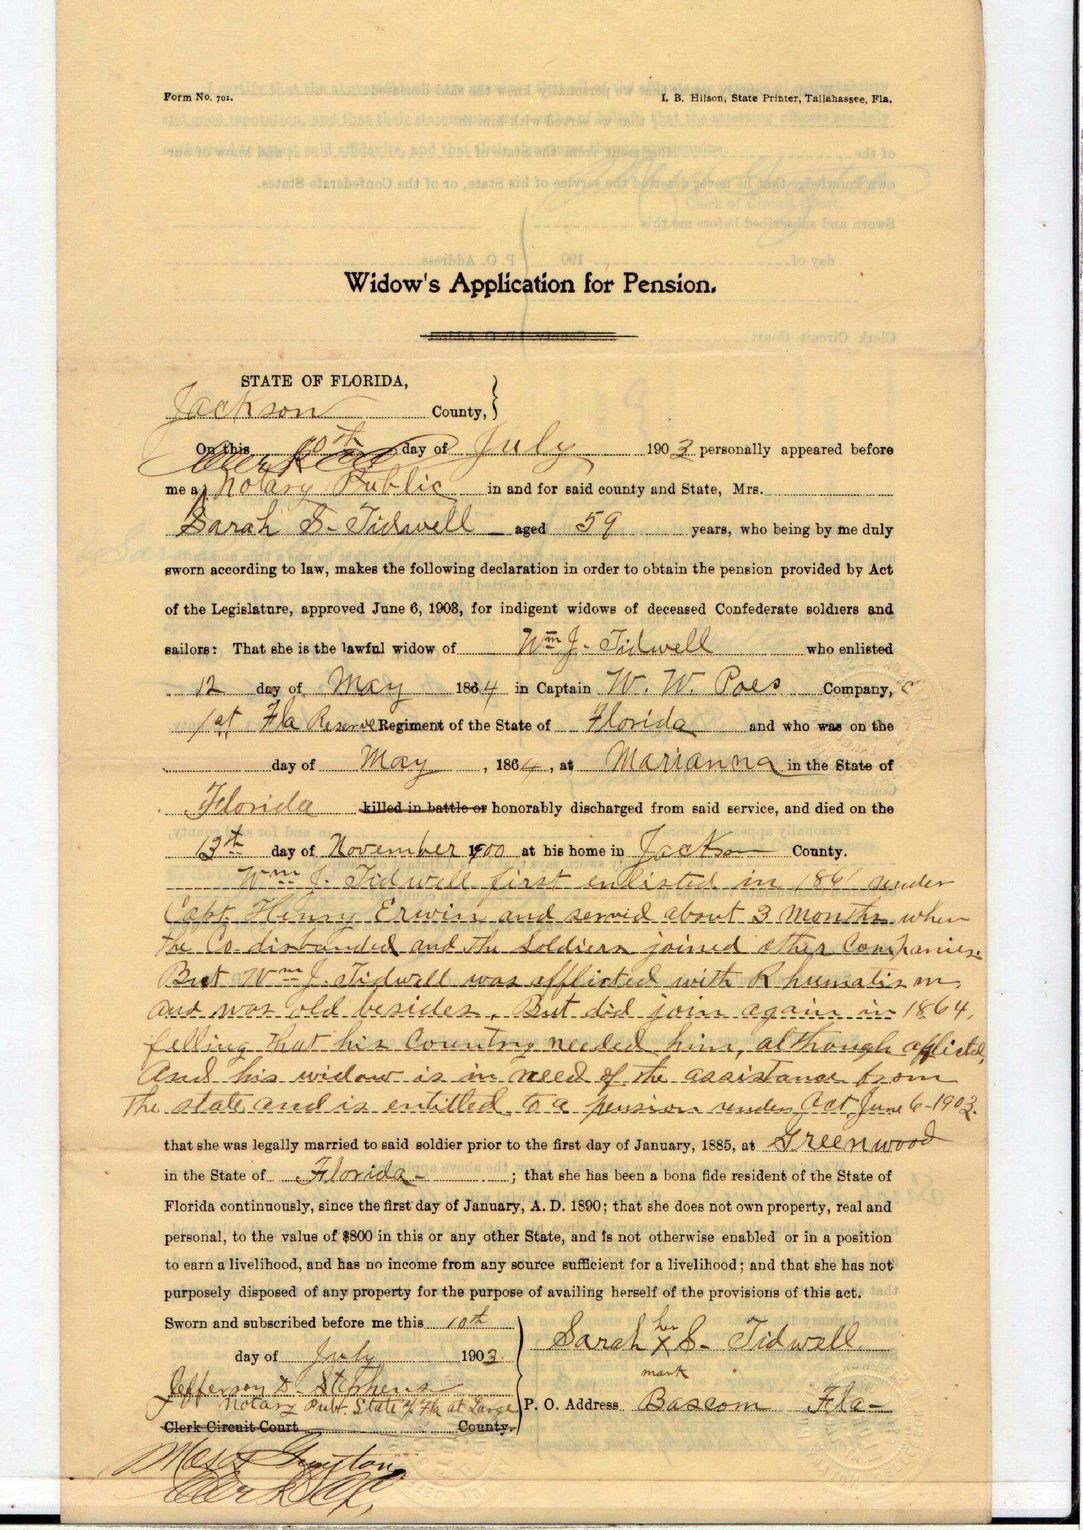 Form No. 701. I. B. Hilson, State Printer, Tallahassee, Fla.
Widow's Application for Pension.
STATE OF FLORIDA,
Jackson County,
On this 10th day of July 1903 personally appeared before
me a Notary Public in and for said county and State, Mrs.
Sarah S. Tidwell aged 59 years, who being by me duly
sworn according to law, makes the following declaration in order to obtain the pension provided by Act
of the Legislature, approved June 6, 1903, for indigent widows of deceased Confederate soldiers and
sailors: That she is the lawful widow of Wm J. Tidwell who enlisted
12 day of May 1864 in Captain W. W. Poes Company,
1st Fla Reserve Regiment of the State of Florida and who was on the
day of May, 1864, at Marianna in the State of
Florida killed in battle or honorably discharged from said service, and died on the
13th day of November 1900 at his home in Jackson County.
Wm J. Tidwell first enlisted in 1861 under
Capt. Henry Erwin and served about 3 months when
the Co. disbanded and the soldiers joined other Companies.
But Wm J. Tidwell was afflicted with Rhumatism
and was old besides. But did join again in 1864,
felling that his Country needed him, although afflicted,
and his widow is in need of the assistance from
the state and is entitled to a pension under act June 6-1903.
that she was legally married to said soldier prior to the first day of January, 1885, at Greenwood
in the State of Florida ; that she has been a bona fide resident of the State of
Florida continuously, since the first day of January, A. D. 1890; that she does not own property, real and
personal, to the value of $800 in this or any other State, and is not otherwise enabled or in a position
to earn a livelihood, and has no income from any source sufficient for a livelihood; and that she has not
purposely disposed of any property for the purpose of availing herself of the provisions of this act.
Sworn and subscribed before me this 10th
day of July 1903
Jefferson D. Stephens
Notary Pub. State of Fla at Large
Clerk Circuit Court County.
Sarah her X S. Tidwell
mark
P. O. Address Bascom Fla-
Clerk